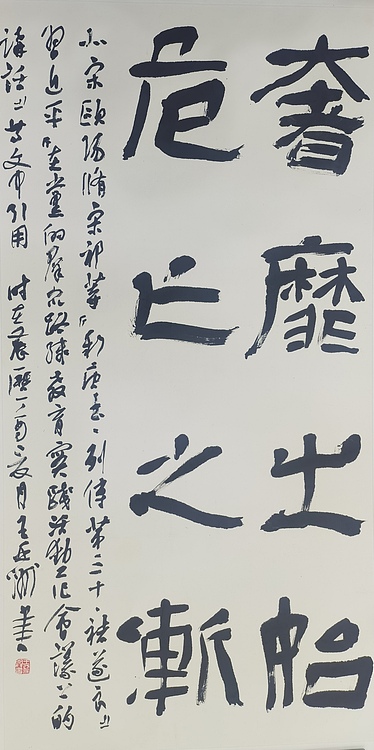 奢靡之始
危亡之漸
北宋歐陽脩宋祁等『新唐書·列傳第三十·褚遂良』
習近平『在黨的群众路線教育實踐活動工作會議上的
講話』文中引用 时在農曆丁酉月王書